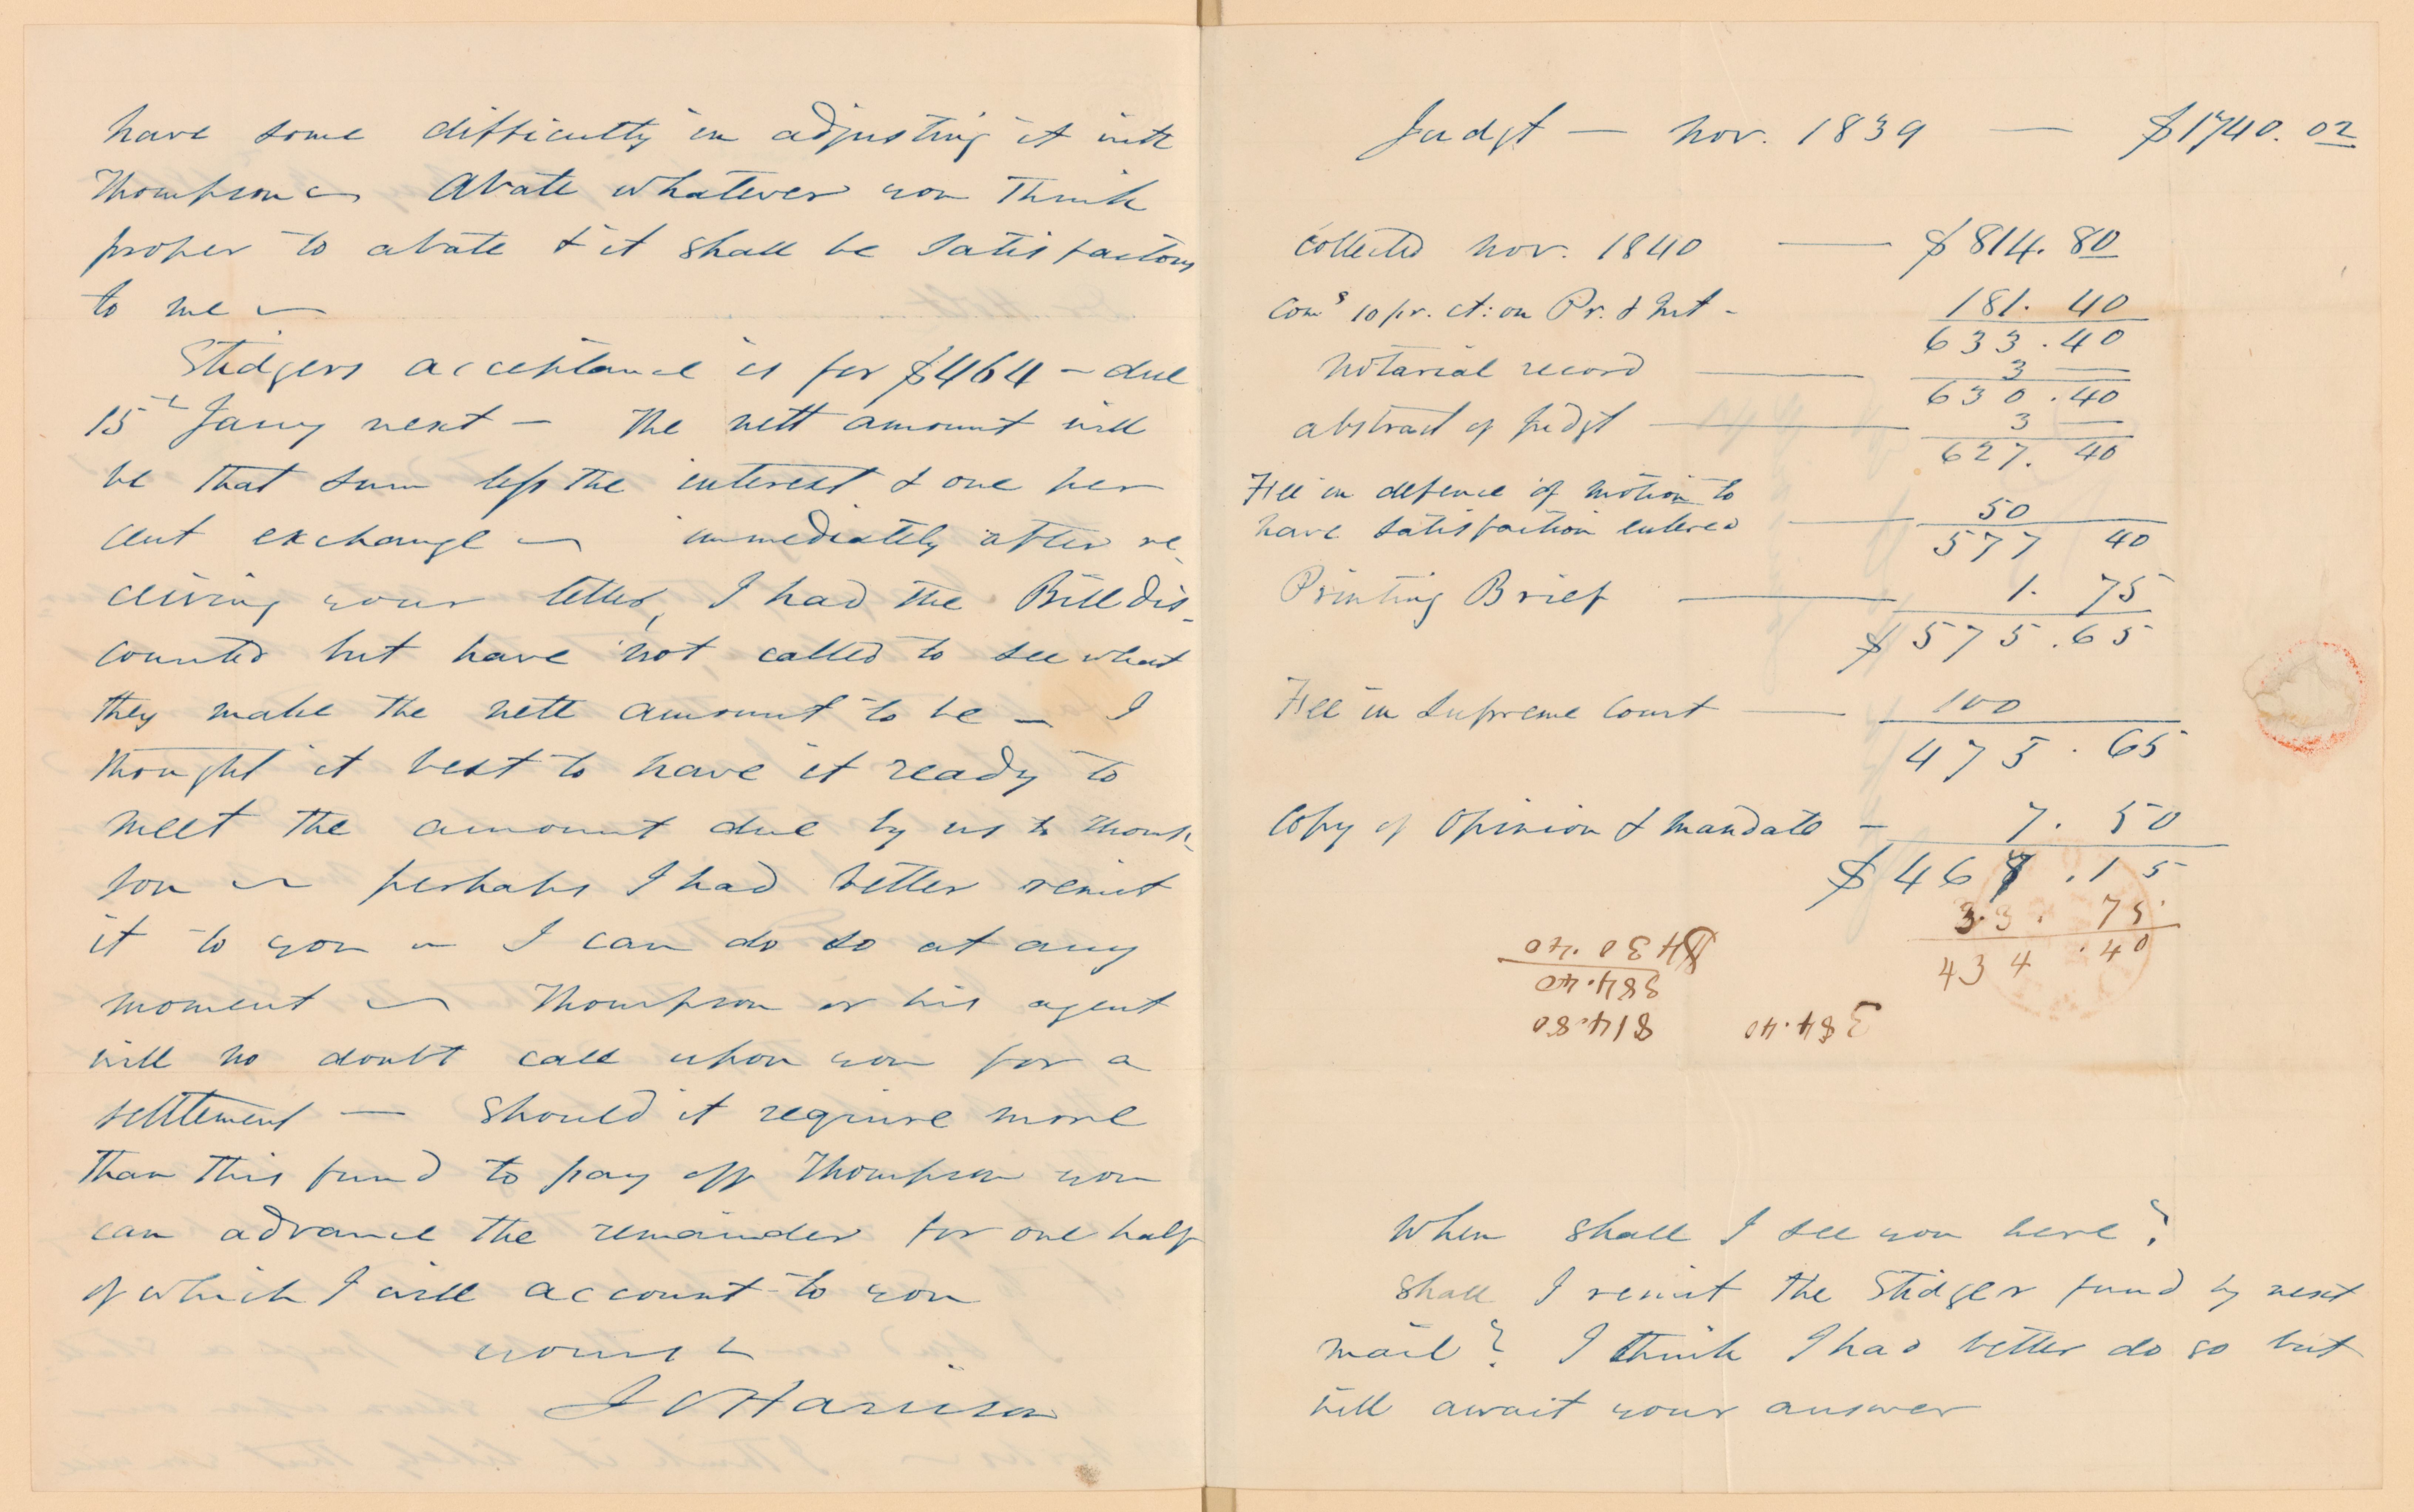 have some difficulty in adjusting it with
Thompson — Abate whatever you think
proper to abate & it shall be satisfactory
to me —
Stidgers acceptance is for $464 — due
15th Jany next — The nett amount will
be that sum less the interest & one per
cent exchange — immediately after re-
ceiving your letter, I had the Bill dis-
counted but have not called to see what
they make the nett amount to be — I
thought it best to have it ready to
meet the amount due by us to Thomp-
son — perhaps I had better remit
it to you — I can do so at any
moment — Thompson or his agent
will no doubt call upon you for a
settlement — should it require more
than this fund to pay off Thompson you
can advance the remainder for one half
of which I will account to you
yours &
J C Harrison
Judgt — Nov. 1839 — $1740.02
Collected Nov. 1840 — $814.80
Coms 10 pr. ct: on Pr. & Int - 181.40
633.40
Notarial record — 3 —
630.40
abstract of judgt — 3 —
627.40
Fee in defence of motion to
have satisfaction entered — 50
577 40
Printing Brief — 1.75
$575.65
Fee in Supreme Court — 100
475.65
Copy of Opinion & mandate — 7.50
$468.15
33.75
434.40
$430.40
384.40
814.80
384.40
When shall I see you here?
Shall I remit the Stidger fund by next
mail? I think I had better do so but
will await your answer